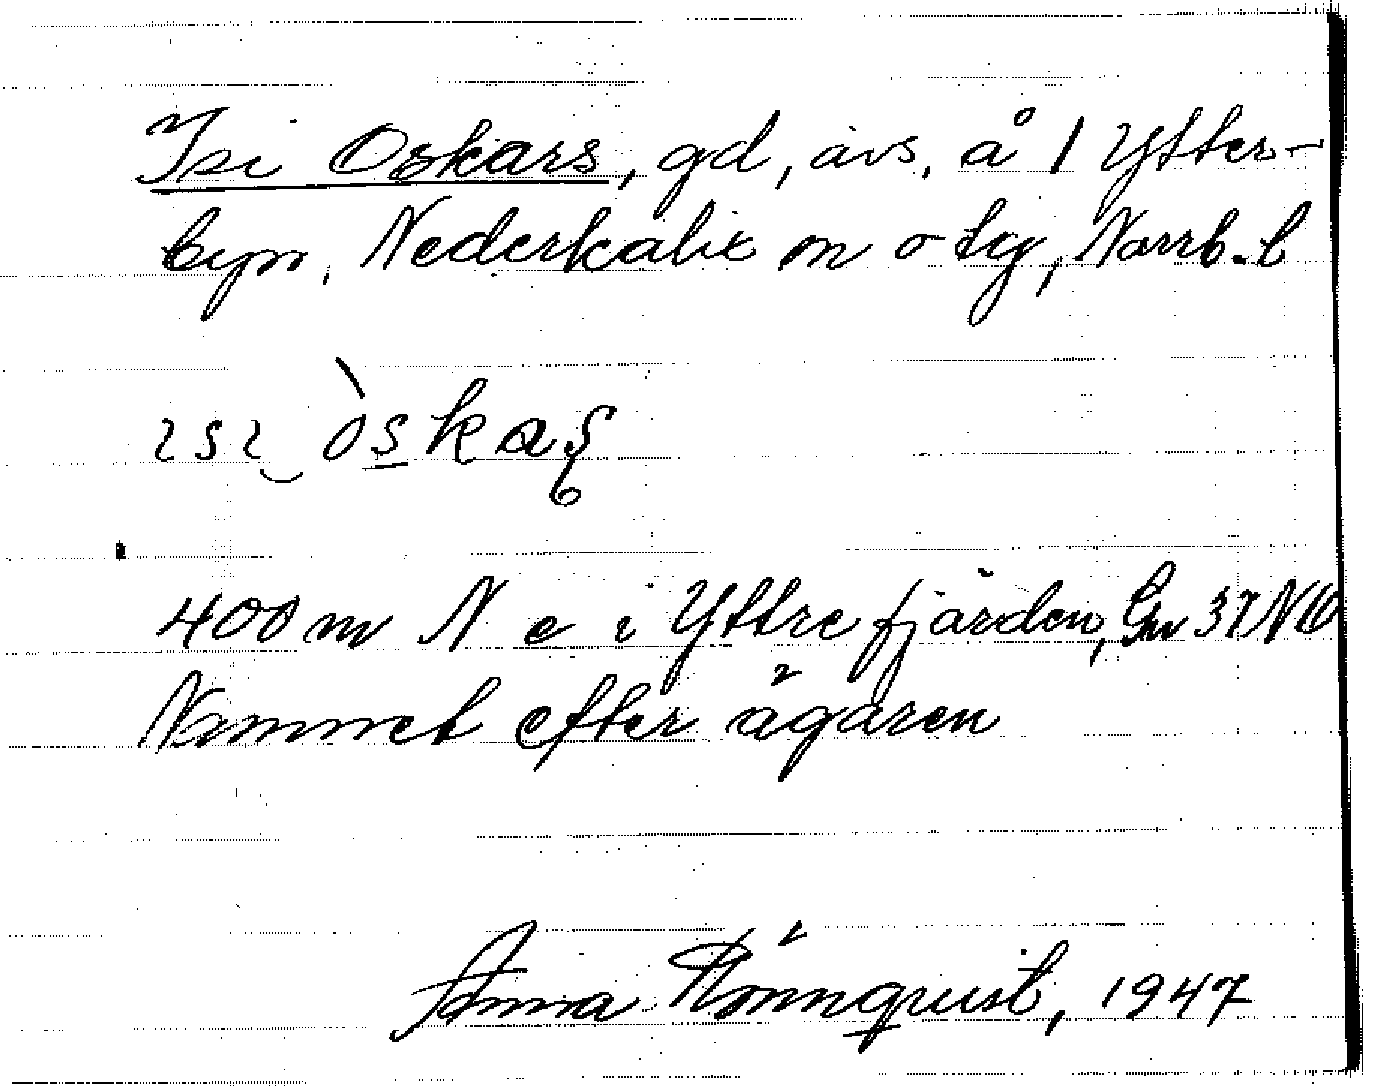 Isi Oskars, gd, avs. å 1 Ytter-
byn, Nederkalix sn o tg, Norrb. l
ɩsɩ‿òskaʂ
400 m N e i Yttrefjärden, Gw 37 NO
Namnet efter ägaren
Anna Rönnquist, 1947